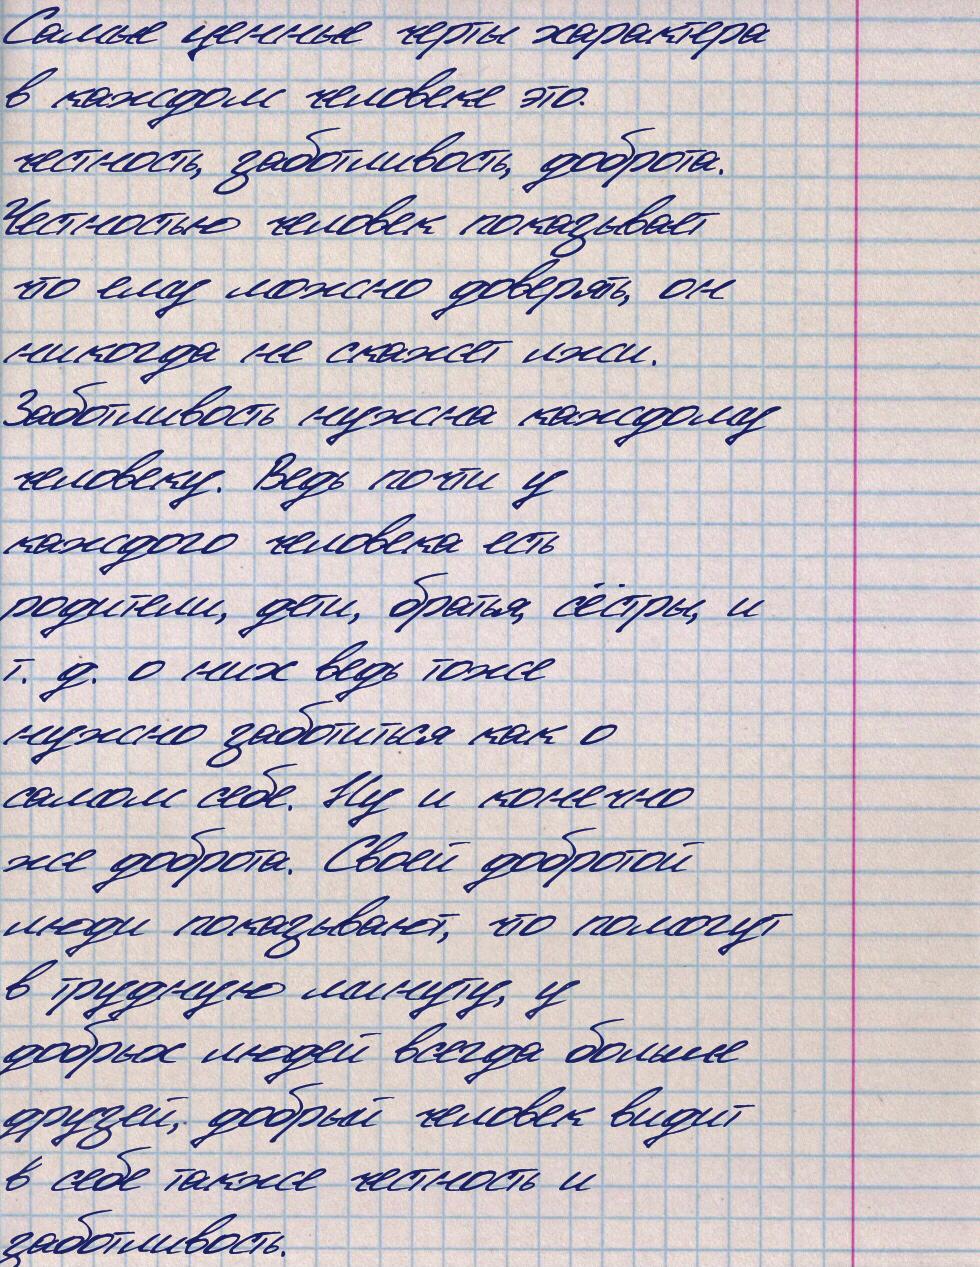 Самые ценные черты характера
в каждом человеке это:
честность, заботливость, доброта.
Честностью человек показывает
что ему можно доверять, он
никогда не скажет лжи.
Заботливость нужна каждому
человеку. Ведь почти у
каждого человека есть
родители, дети, братья, сёстры, и
т. д. о них ведь тоже
нужно заботиться как о
самом себе. Ну и конечно
же доброта. Своей добротой
люди показывают, что помогут
в трудную минуту, у
добрых людей всегда больше
друзей, добрый человек видит
в себе также честность и
заботливость.